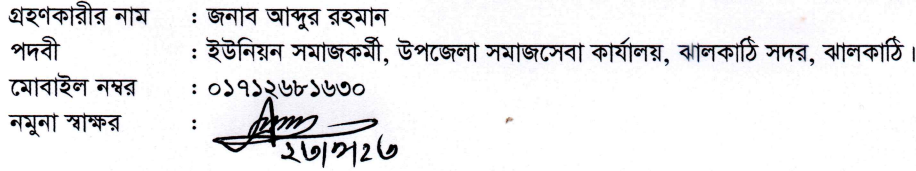 গ্রহণকারীর নাম : জনাব আব্দুর রহমান
পদবী : ইউনিয়ন সমাজকর্মী, উপজেলা সমাজসেবা কার্যালয়, ঝালকাঠি সদর, ঝালকাঠি।
মোবাইল নম্বর : ০১৭১২৬৮১৬৩০
নমুনা স্বাক্ষর :